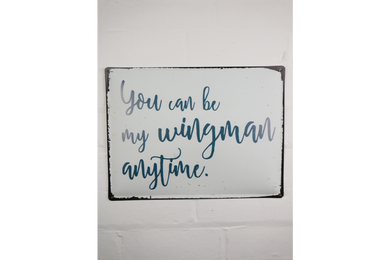 You can be
my wingman
anytime.